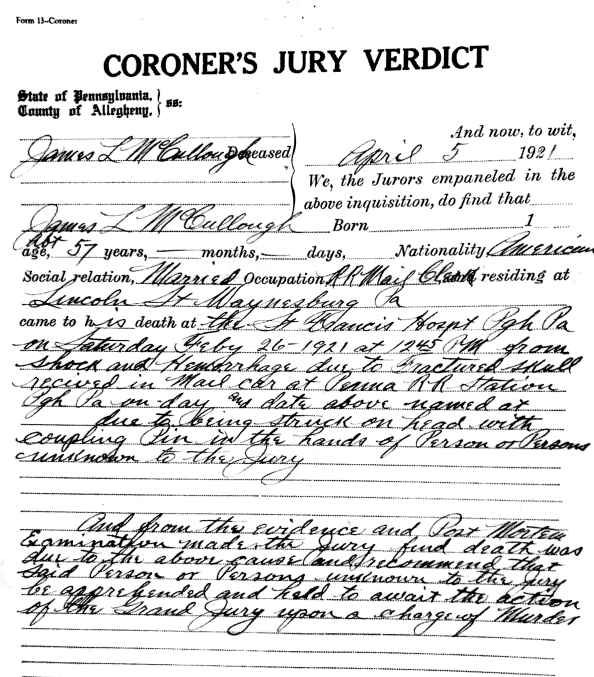 Form 13--Coroner
CORONER'S JURY VERDICT
State of Pennsylvania, } ss:
County of Allegheny, }
James L McCullough Deceased
And now, to wit,
April 5 1921
We, the Jurors empaneled in the
above inquisition, do find that
James L McCullough Born 1
Abt
age, 57 years, — months, — days, Nationality American
Social relation, Married Occupation RR Mail Clerk residing at
Lincoln St Waynesburg Pa
came to his death at the St Francis Hospt Pgh Pa
on Saturday Feby 26-1921 at 1245 PM from
shock and Hemorrhage due to Fractured skull
recived in Mail car at Penna RR Station
Pgh Pa on day and date above named at
due to being struck on head with
coupling Pin in the hands of Person or Persons
unknown to the jury
And from the evidence and Post Mortem
Examination made, the jury find death was
due to the above cause and recommend that
said Person or Persons unknown to the jury
be apprehended and held to await the action
of the Grand Jury upon a charge of Murder